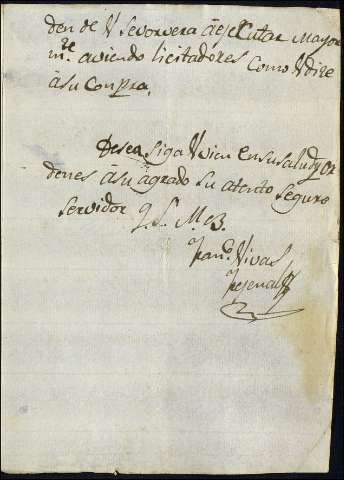 den de V se vorvera à ejecutar Mayor
m.te aviendo licitadores como V dize
à su conpra.
Desea siga V vien en su salud y or
denes à su agrado su atento seguro
servidor Q. S. M. B.
Fran.co Vivas